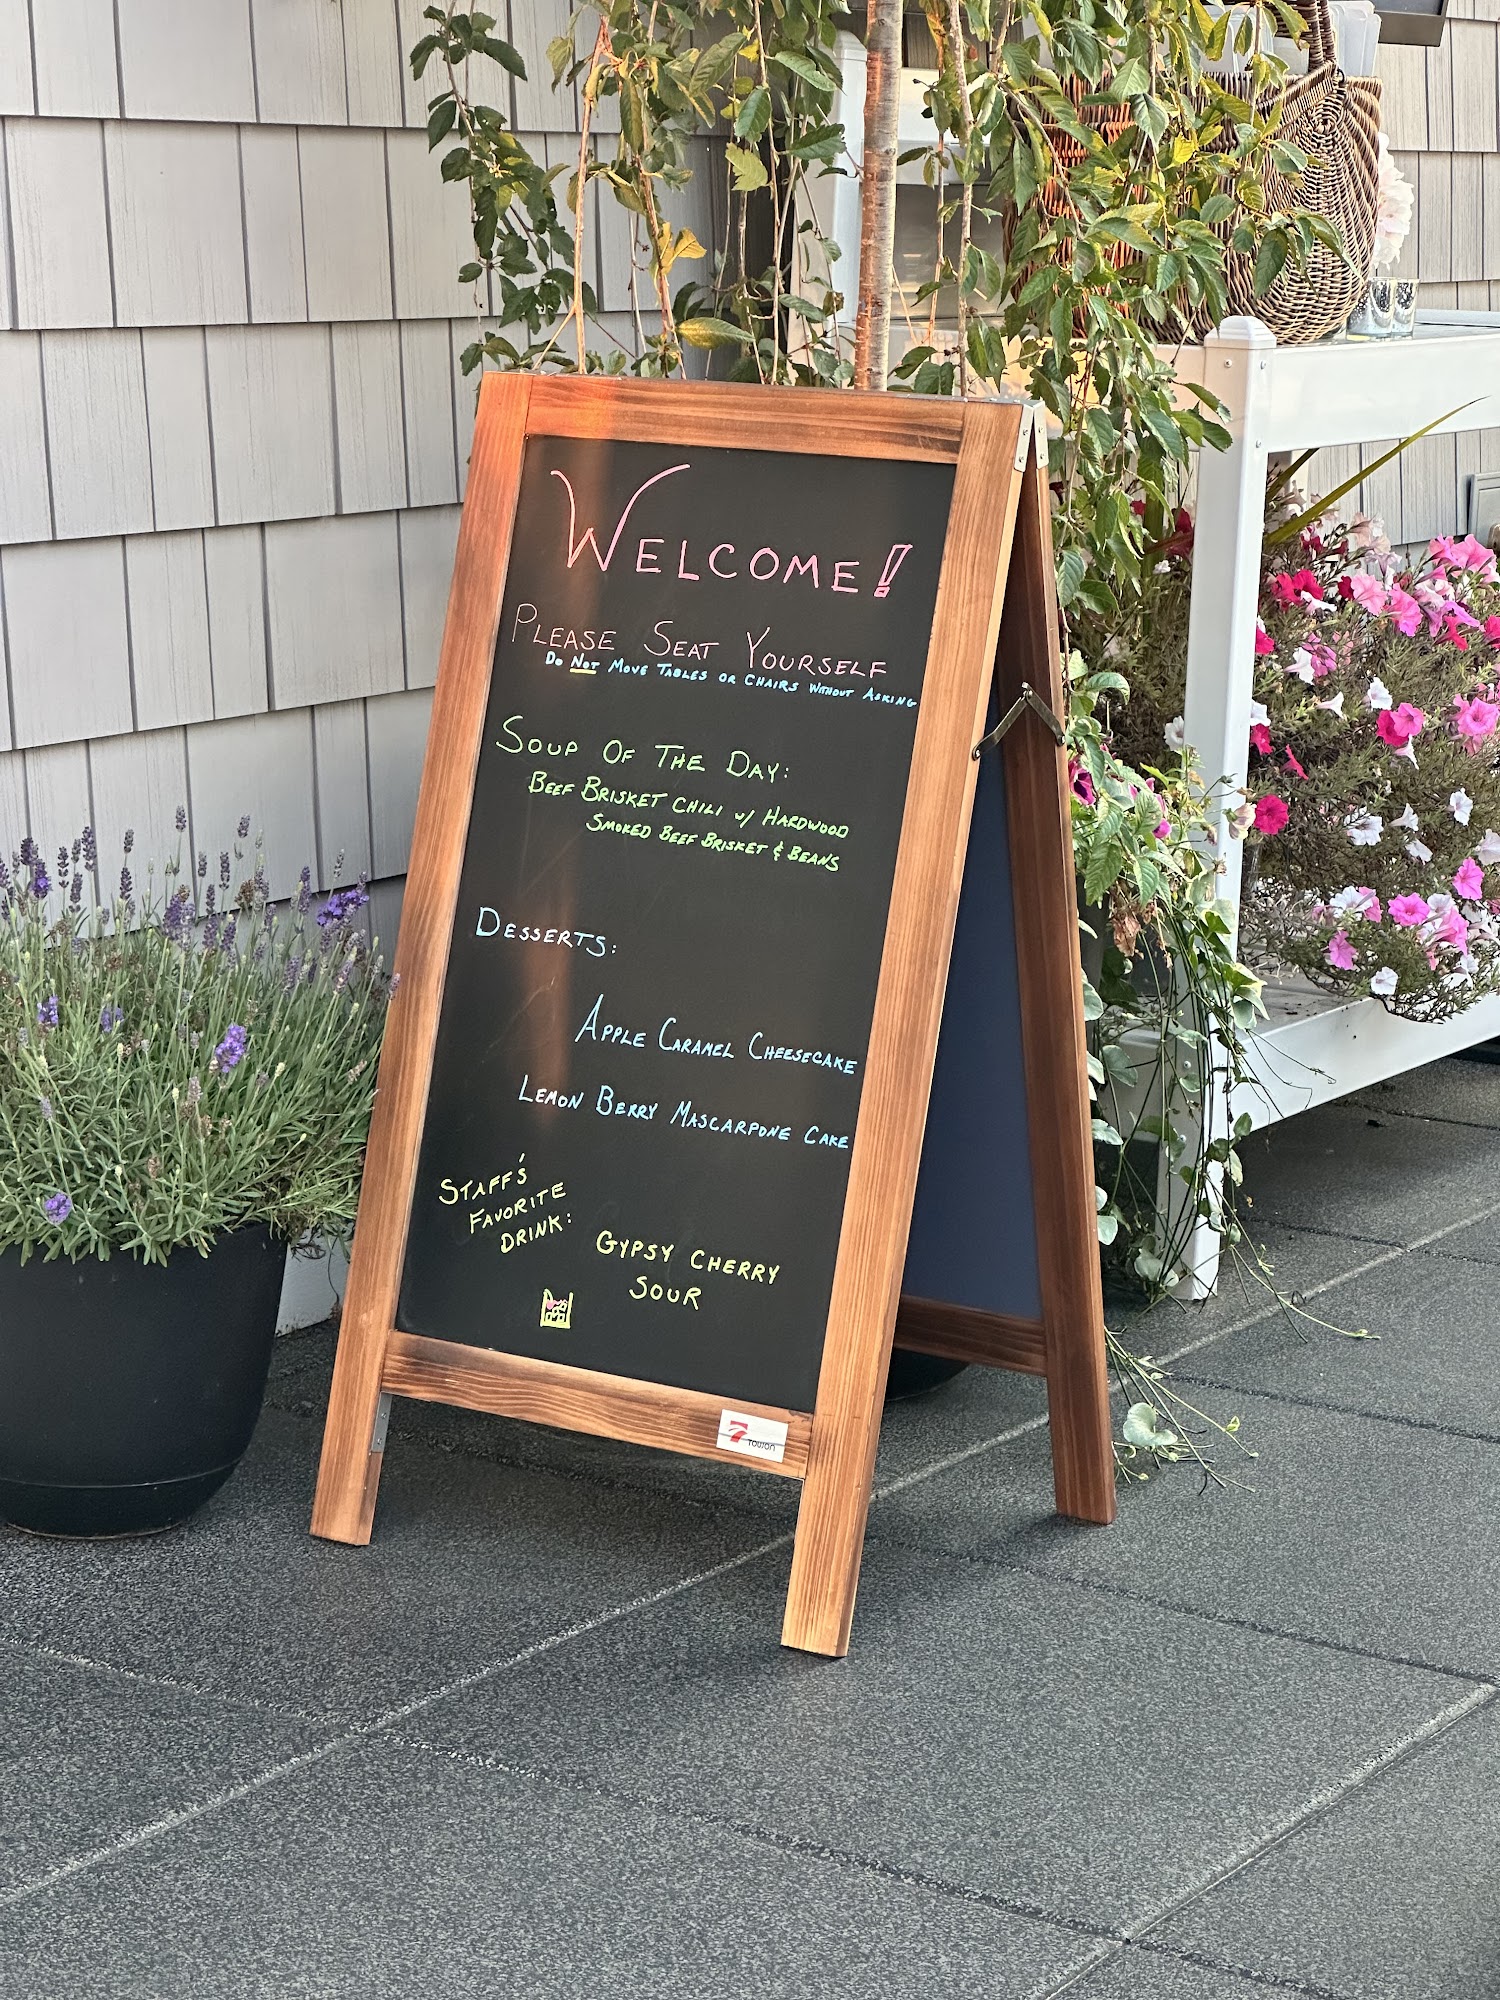 WELCOME!
PLEASE SEAT YOURSELF
DO NOT MOVE TABLES OR CHAIRS WITHOUT ASKING
SOUP OF THE DAY:
BEEF BRISKET CHILI W/ HARDWOOD
SMOKED BEEF BRISKET & BEANS
DESSERTS:
APPLE CARAMEL CHEESECAKE
LEMON BERRY MASCARPONE CAKE
STAFF'S
FAVORITE
DRINK:
GYPSY CHERRY
SOUR
Towon